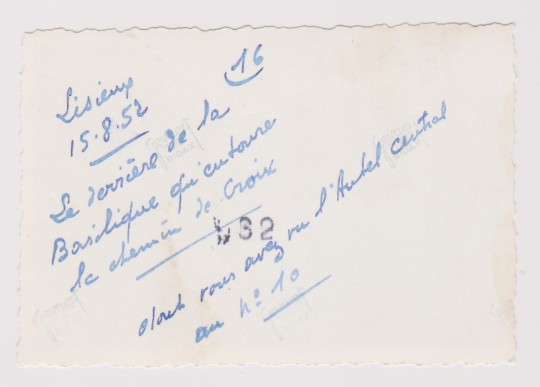 16
Lisieux
15.8.52
Le derrière de la
Basilique qu'entoure
le chemin de Croix
332
dont vous avez vu l'Autel central
au n° 10